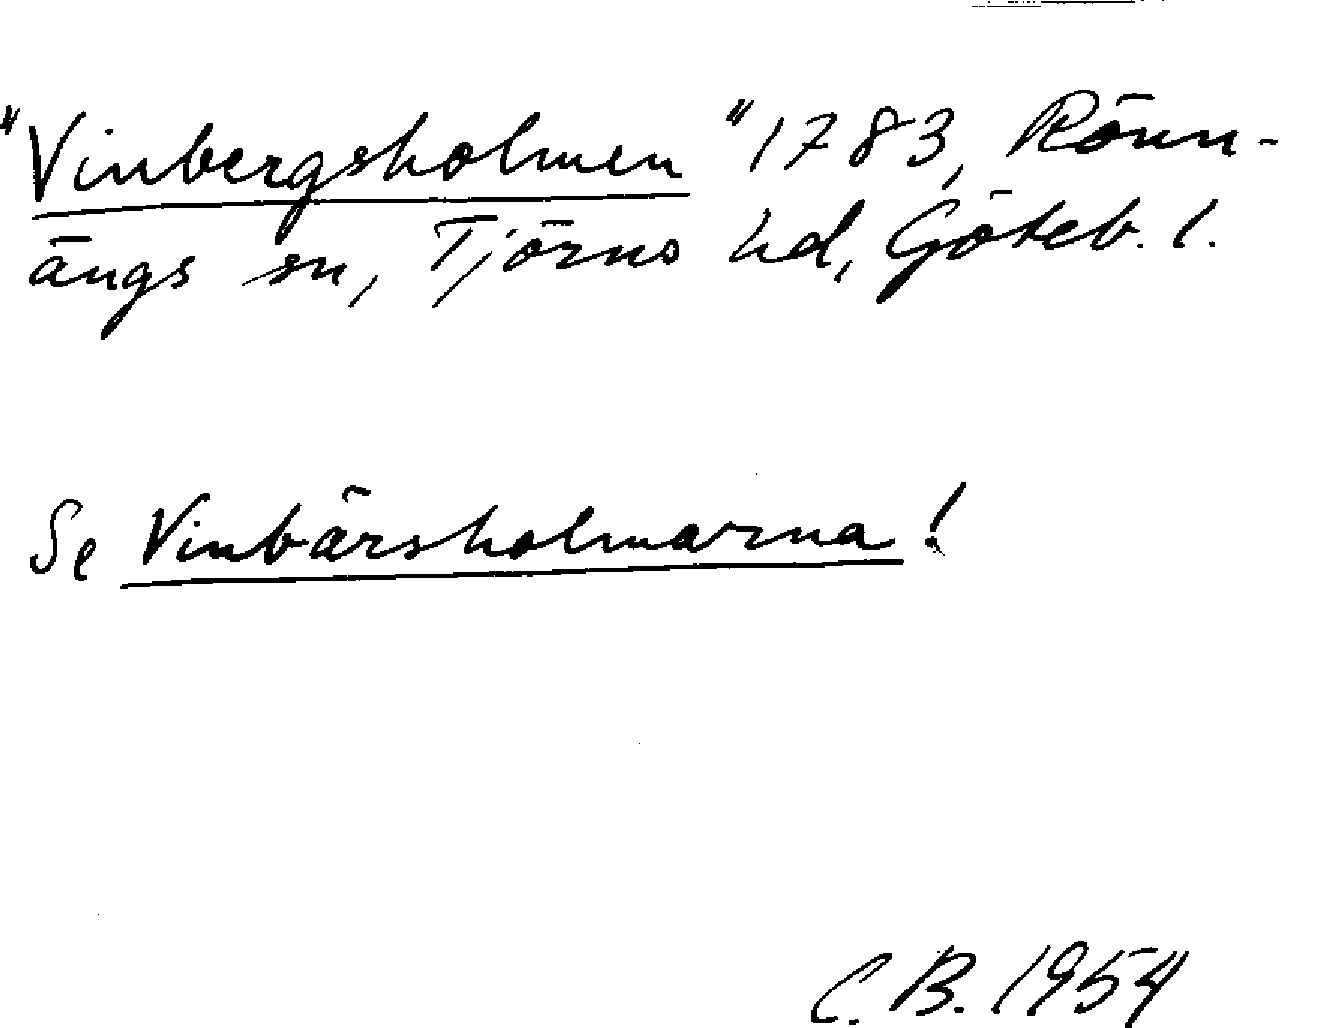 "Vinbergsholmen" 1783, Rönn-
ängs sn, Tjörns hd, Göteb. l.
Se Vinbärsholmarna!
C. B. 1954